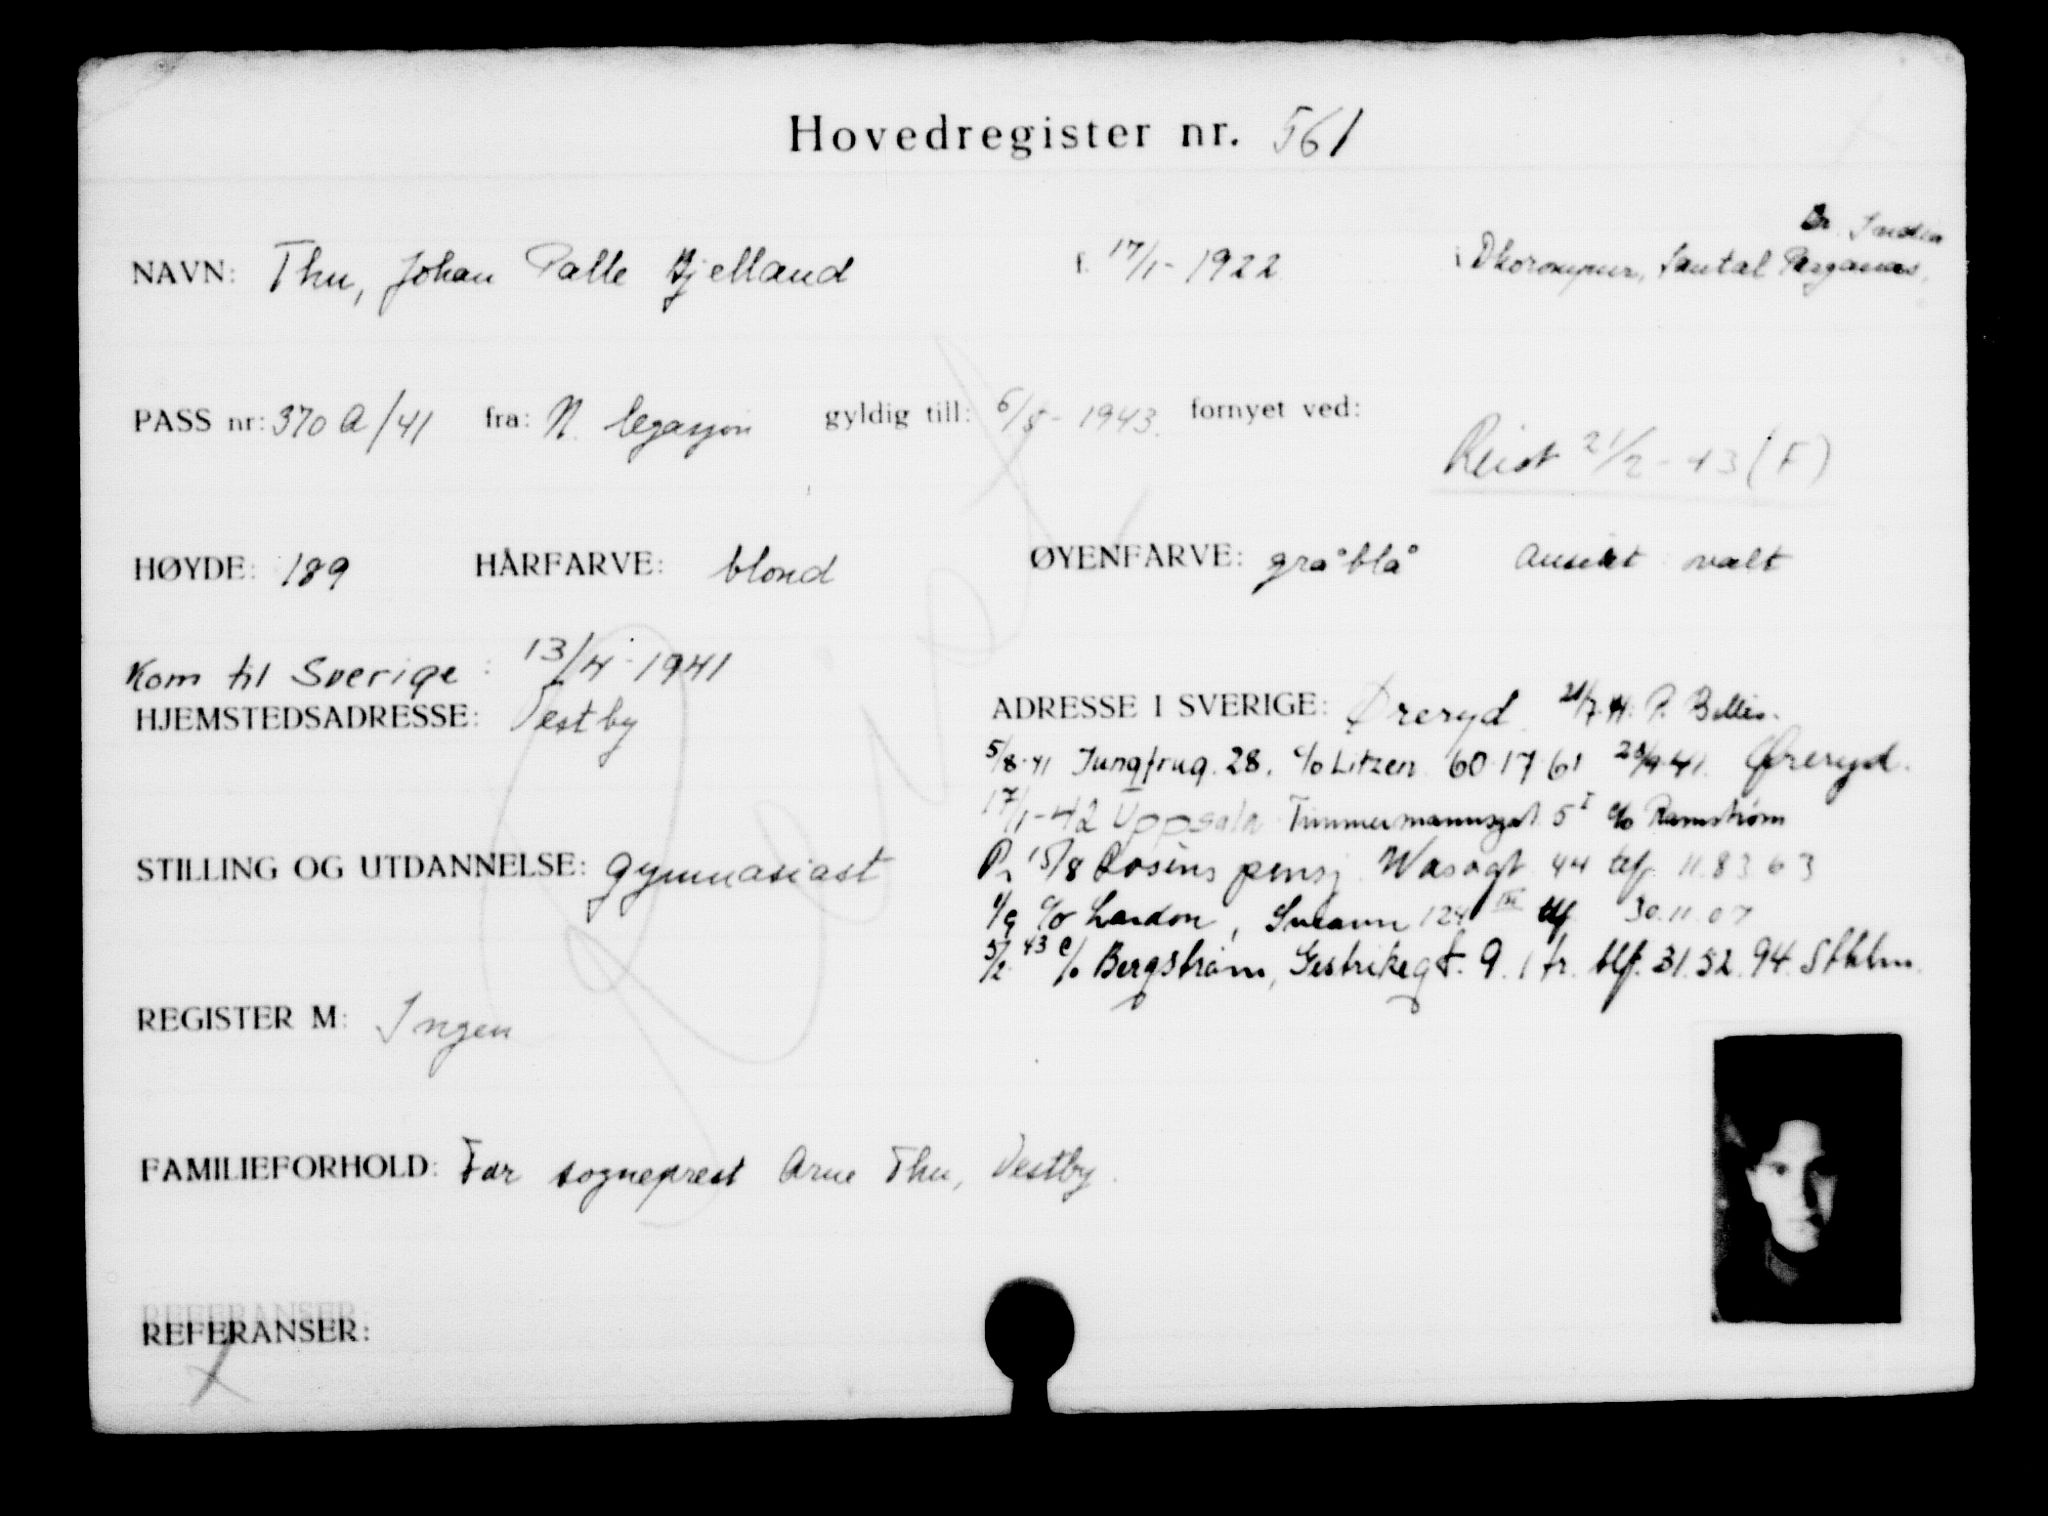 Hovedregister nr. 561
Br. India
NAVN: Thu, Johan Palle Bjelland f. 17/1-1922 i Dhorompur, Santal Parganas.
PASS nr: 370 A/41 fra: N. legasjon gyldig till: 6/8-1943. fornyet ved:
Reist 21/2-43 (F)
HØYDE: 189 HÅRFARVE: blond ØYENFARVE: gråblå Ansikt ovalt
Kom til Sverige: 13/4-1941
HJEMSTEDSADRESSE: Vestby
ADRESSE I SVERIGE: Øreryd 21/7.41. P.
5/8-41 Jungfrug. 28. c/o Litzen 60 17 61 Øreryd.
17/1-42 Uppsala Timmermannsgat 5 I c/o Ramström
15/8 Rosins pensj. Wasagt 44 tlf. 11.83 63
1/9 c/o Landon, 124 III tlf 30.11.07
5/2 43 c/o Bergström, Gestrikegt. 9. 1 tr. tlf. 31.52.94. Sthlm.
STILLING OG UTDANNELSE: Gymnasiast
REGISTER M: Ingen
Reist
FAMILIEFORHOLD: Far sogneprest Arne Thu, Vestby.
REFERANSER:
REFERANSER: